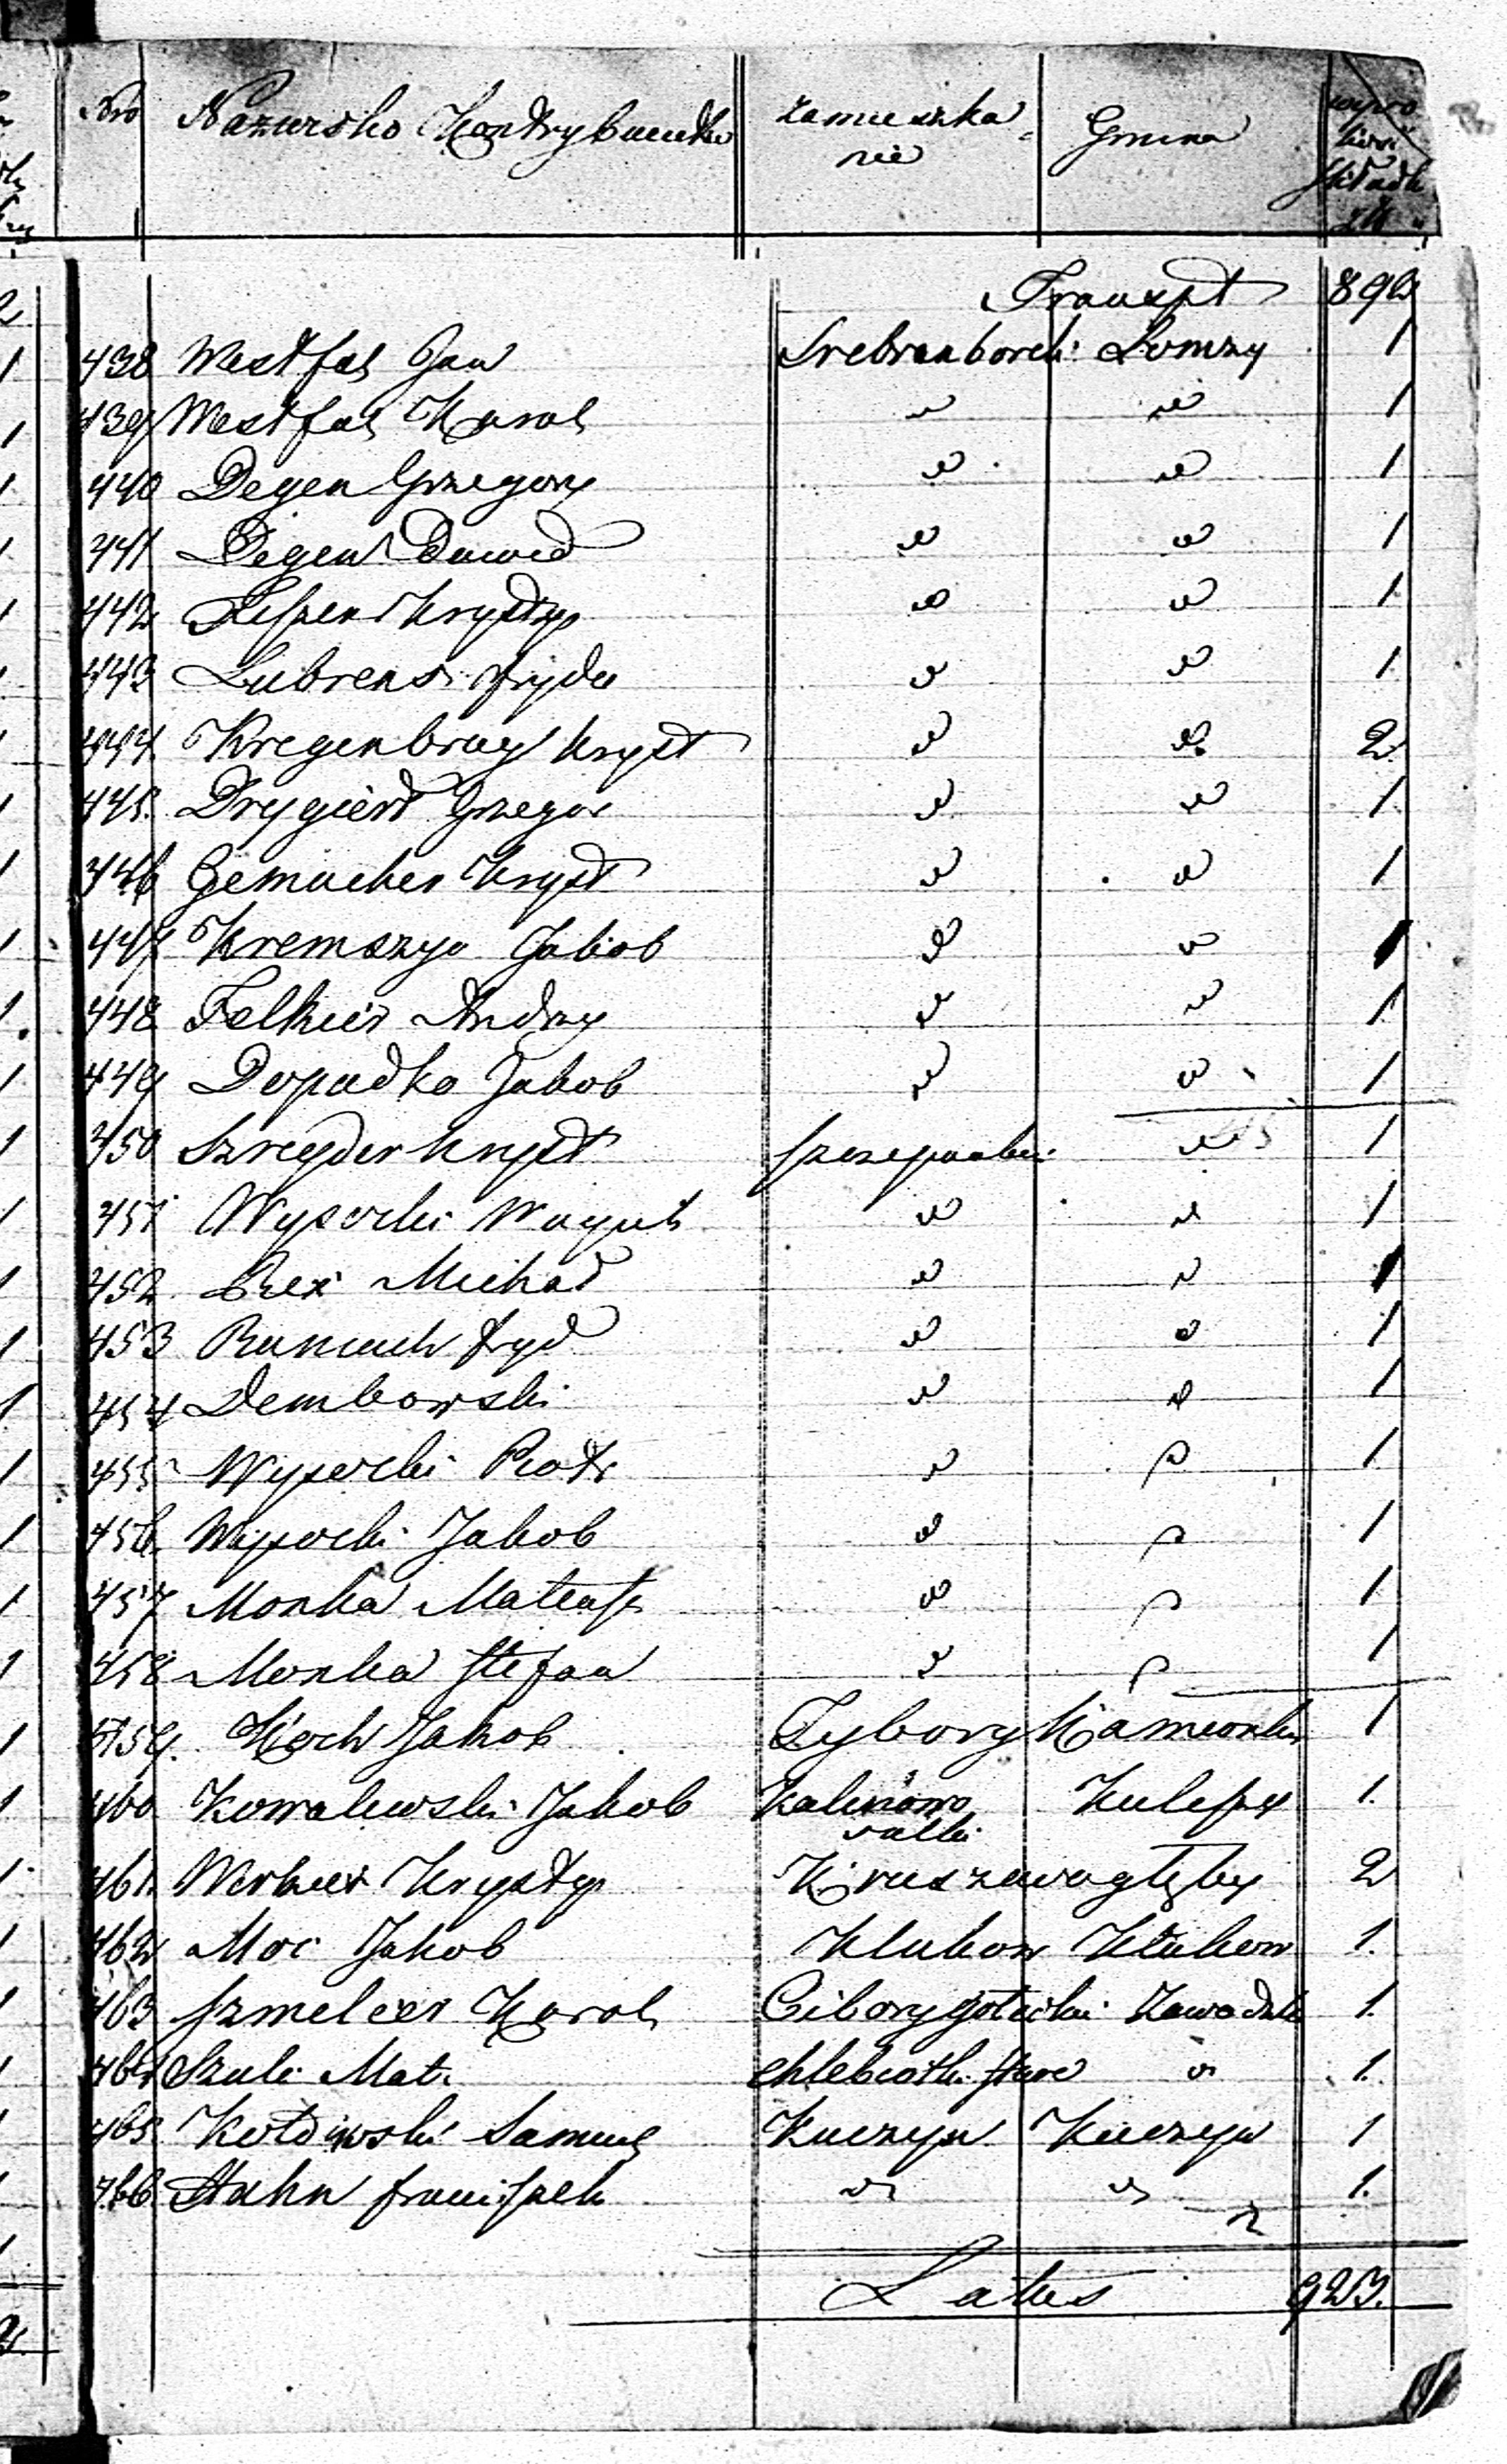 Nro Nazwisko Kontrybuenta zamieszka= nie Gmina wypro składk zł
Transpt 892
438 Westfal Jan Srebrnborek Łomży 1
439 Westfal Karol " " 1
440 Degen Grzegorz " " 1
441 Degen Dawid " " 1
442 Krysty " " 1
443 Lubrens fryde " " 1
444. Kregenbrog Kryst " " 2
445. Drygiert Grzegor " " 1
446 Gemacher Kryst " " 1
447 Kremszyo Jakob " " 1
448 Felkier Andrzy " " 1
449 Dopadka Jakob " " 1
450 Szreyder Kryst " 1
451 Wysocki " " 1
452. Michał " " 1
453 fryd " " 1
454 Dembowski " " 1
455 Wysocki Piotr " " 1
456. Wysocki Jakob " " 1
457 Monka Mateusz " " 1
458 Monka Stefan " " 1
459. Koch Jakob Tybory Kamionka 1
460 Kowalewski Jakob Kalinowo Kulesze 1.
461. Krysty Kruszewo głęby 2
462 Moc Jakob Klukow Klukow 1.
463 Szmelcer Karol Cibory gołecki Zawadzki 1.
464 Szulc Mat. Chlebiotki stare " 1.
465 Samuel Kuczyn Kuczyn 1
466 Hahn franciszek " " 1.
Latus 923.